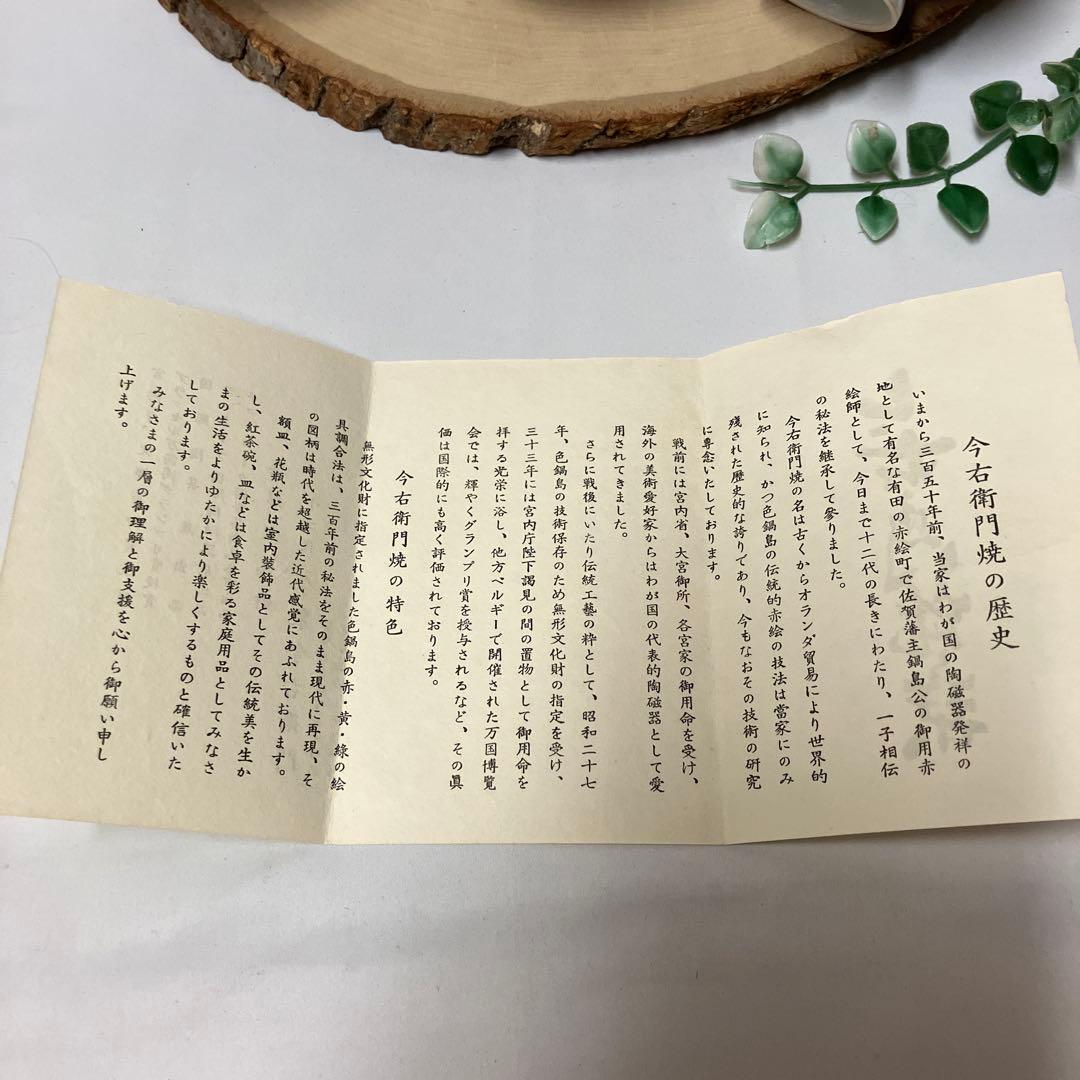 今右衛門焼の歴史
いまから三百五十年前、当家はわが国の陶磁器発祥の
地として有名な有田の赤絵町で佐賀藩主鍋島公の御用赤
絵師として、今日まで十二代の長きにわたり、一子相伝
の秘法を継承して参りました。
今右衛門焼の名は古くからオランダ貿易により世界的
に知られ、かつ色鍋島の伝統的赤絵の技法は當家にのみ
残された歴史的な誇りであり、今もなおその技術の研究
に専念いたしております。
戦前には宮内省、大宮御所、各宮家の御用命を受け、
海外の美術愛好家からはわが国の代表的陶磁器として愛
用されてきました。
さらに戦後にいたり伝統工藝の粋として、昭和二十七
年、色鍋島の技術保存のため無形文化財の指定を受け、
三十三年には宮内庁陛下謁見の間の置物として御用命を
拝する光栄に浴し、他方ベルギーで開催された万国博覧
会では、輝やくグランプリ賞を授与されるなど、その眞
価は国際的にも高く評価されております。
今右衛門焼の特色
無形文化財に指定されました色鍋島の赤・黄・緑の絵
具調合法は、三百年前の秘法をそのまま現代に再現、そ
の図柄は時代を超越した近代感覚にあふれております。
額皿、花瓶などは室内装飾品としてその伝統美を生か
し、紅茶碗、皿などは食卓を彩る家庭用品としてみなさ
まの生活をよりゆたかにより楽しくするものと確信いた
しております。
みなさまの一層の御理解と御支援を心から御願い申し
上げます。